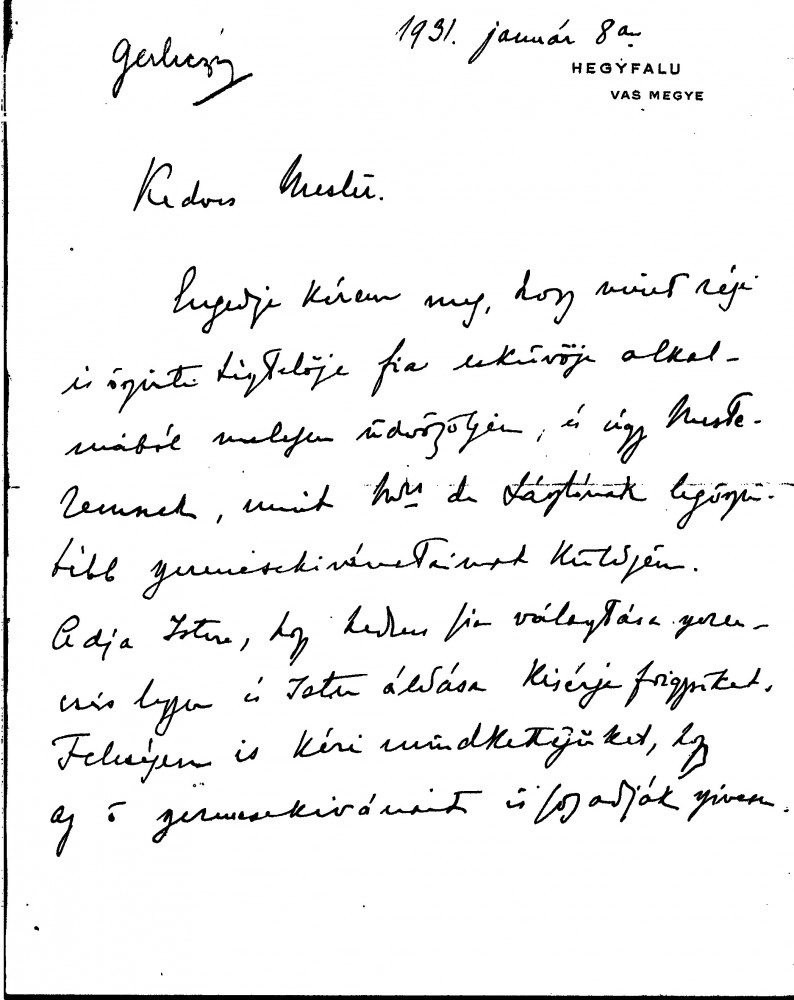 1931. január 8án
Gerliczy
HEGYFALU
VAS MEGYE
Kedves Mester.
Engedje kérem meg, hogy mint régi
is őszinte tisztelője fia esküvője alkal-
mából melegen üdvözöljem, és úgy Meste-
remnek, mint de Lászlónak legőszin-
tébb szerencsekivánataimat küldjem.
Adja Isten, hogy kedves fia választása szeren-
csés legyen és Isten áldása kisérje frigyüket.
Feleségem is kéri mindkettejüket, hogy
az ő szerencsekivánsait is fogadják szivesen.